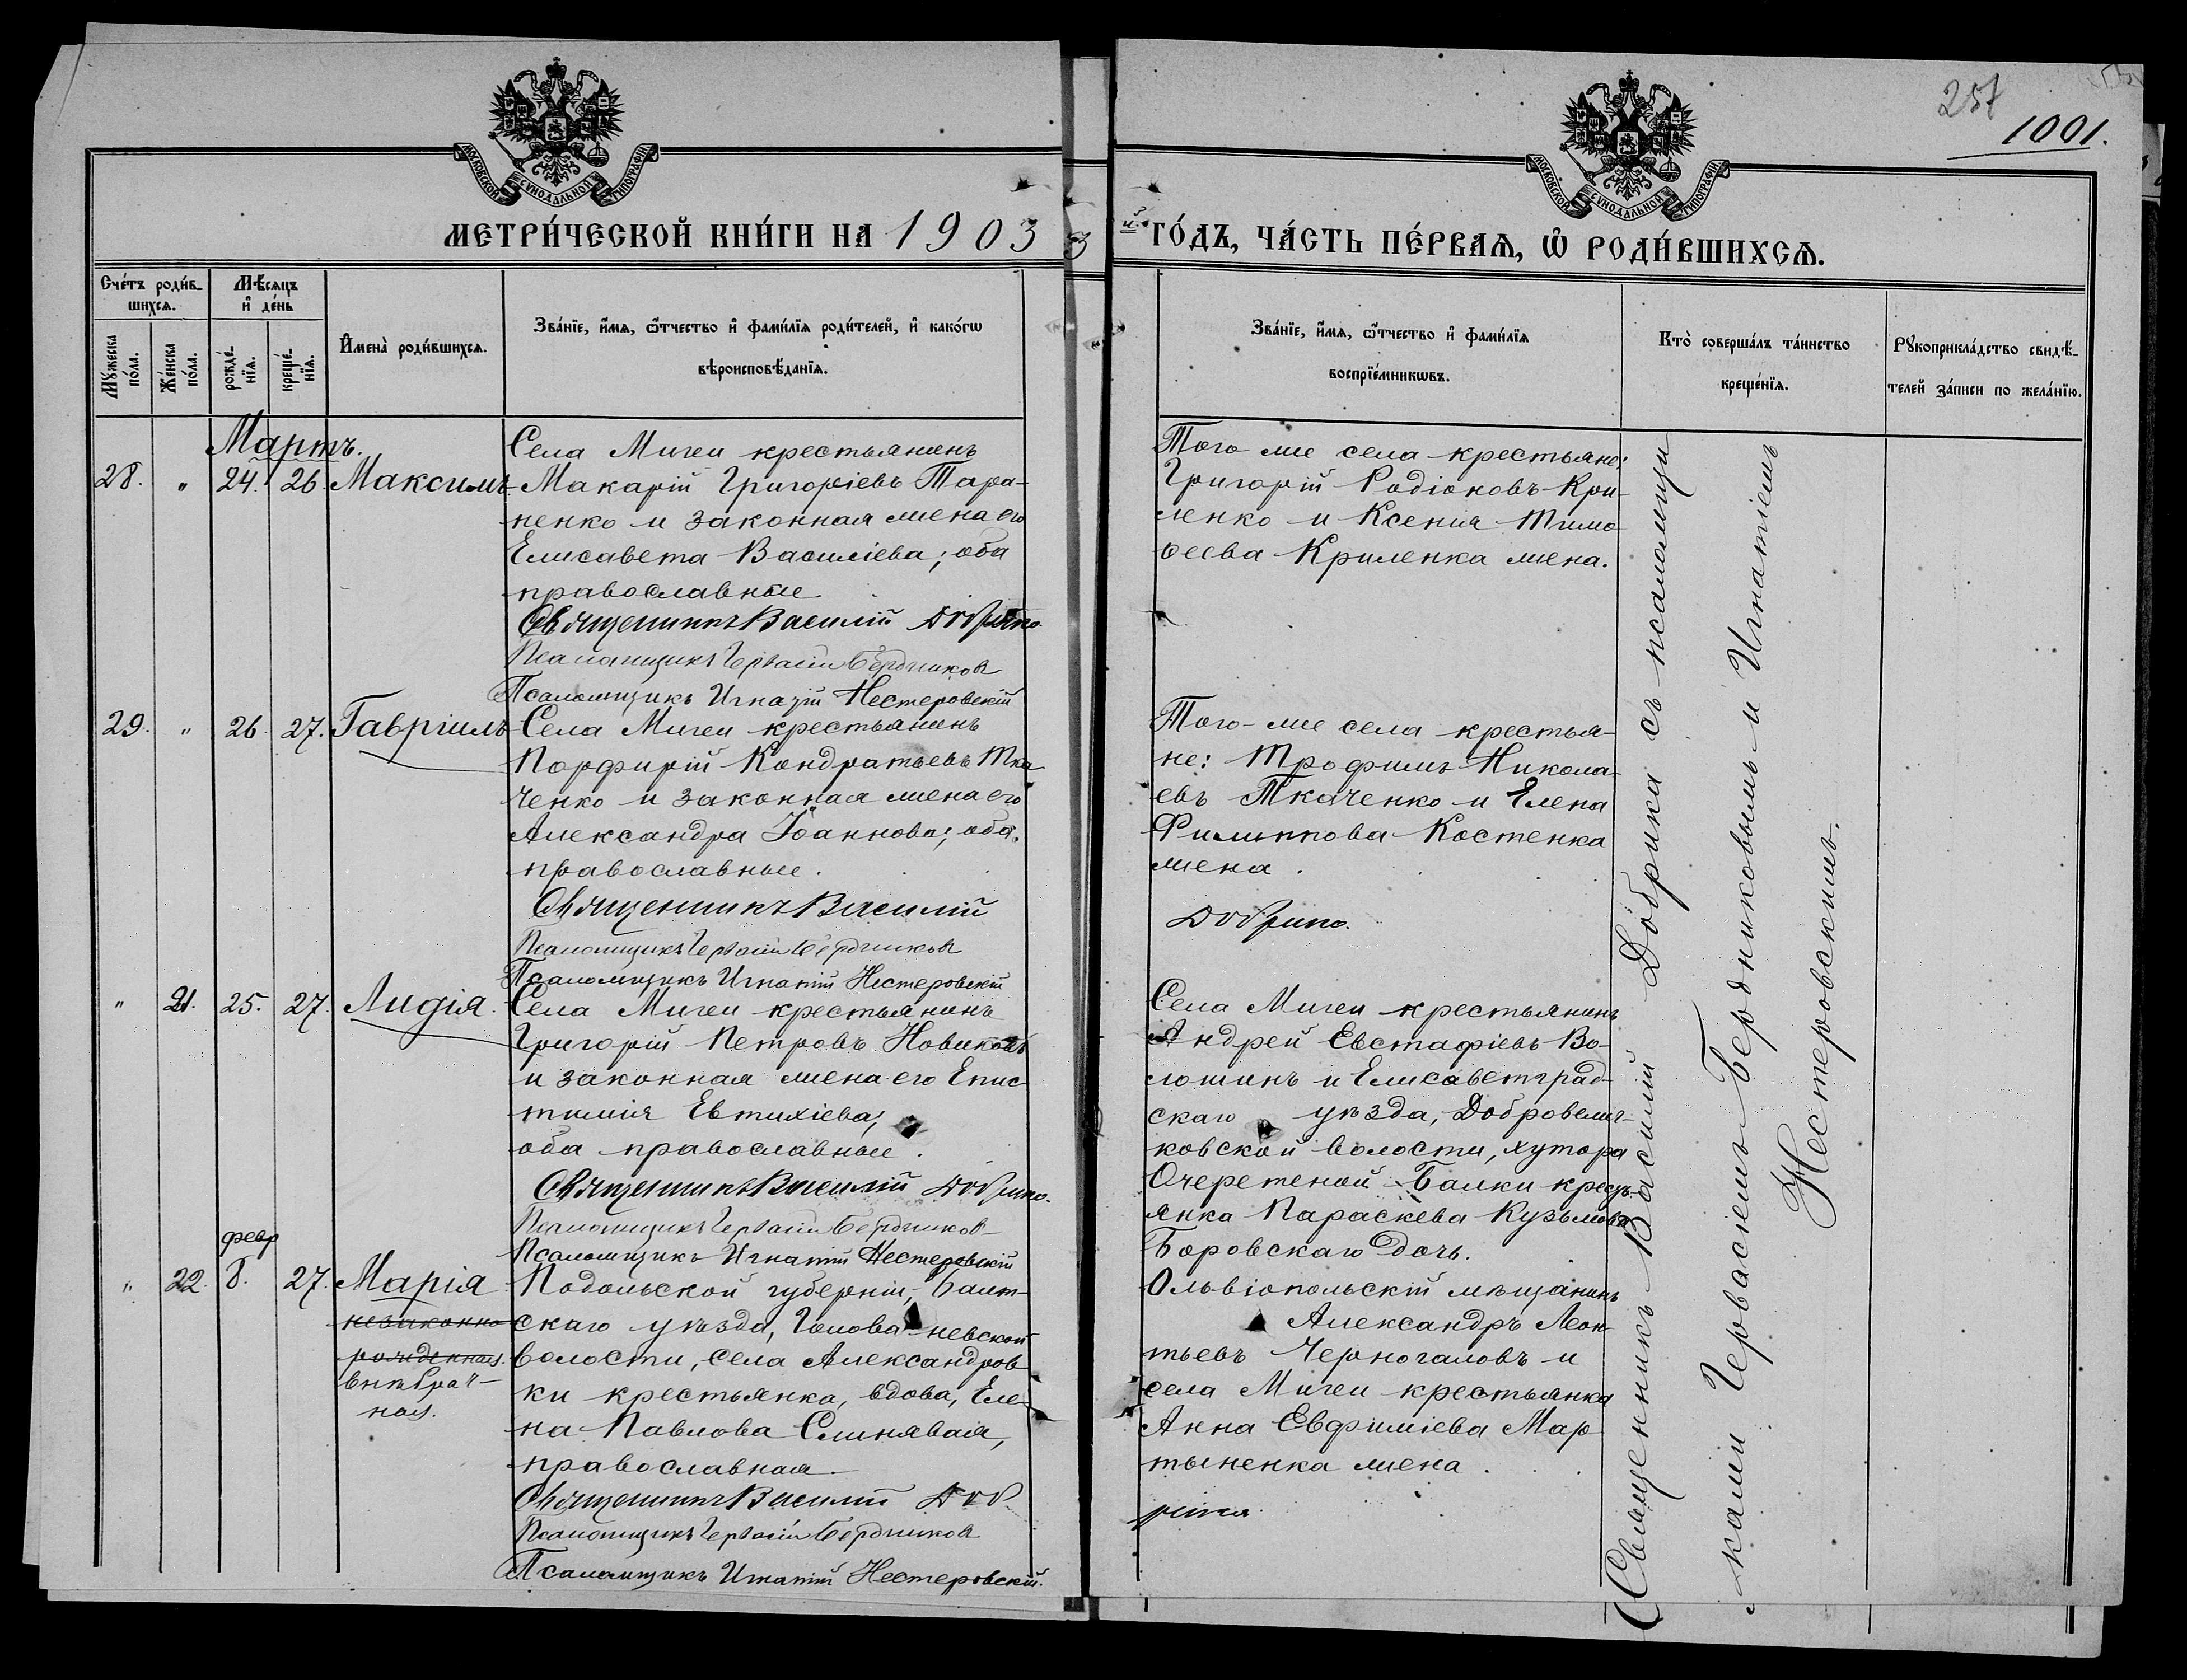 257
1001.
МОСКОВСКОЙ СУНОДАЛЬНОЙ ТИПОГРАФІИ
МОСКОВСКОЙ СУНОДАЛЬНОЙ ТИПОГРАФІИ
МЕТРИ́ЧЕСКОЙ КНИ́ГИ НА 1903
3 й ГО́ДЪ, ЧА́СТЬ ПЕ́РВАѦ, Ѿ РОДИ́ВШИХСѦ.
Сче́тъ роди́в-
шихсѧ.
Мꙋ́жеска по́ла.
Же́нска по́ла.
Мѣ́сѧцъ
и҆ де́нь
рожде́-
нїѧ.
креще́-
нїѧ.
И҆мена̀ роди́вшихсѧ.
Зва́нїе, и҆́мѧ, ѻ҆́тчество и҆ фами́лїѧ роди́телей, и҆ како́гѡ
вѣроисповѣ́данїѧ.
Зва́нїе, и҆́мѧ, ѻ҆́тчество и҆ фами́лїѧ
воспрїе́мникѡвъ.
Кто̀ соверша́лъ та́инство
креще́нїѧ.
Рꙋкоприкла́дство свидѣ́-
телей за́писи по жела́нїю.
Мартъ.
28. " 24. 26. Максимъ
Села Мигеи крестьянинъ
Макарій Григоріевъ Тара-
ненко и законная жена его
Елисавета Василіева; оба
православные
Священникъ Василій Добрыка
Псаломщикъ Гервасій Бердников
Псаломщикъ Игнатій Нестеровскій
Того же села крестьяне:
Григорій Родіоновъ Кри-
ленко и Ксенія Тимо-
ѳеева Криленка жена.
29. " 26. 27. Гавріилъ
Села Мигеи крестьянинъ
Порфирій Кондратьевъ Тка-
ченко и законная жена его
Александра Іоаннова; оба
православные.
Священникъ Василій
Добрика.
Псаломщикъ Гервасій Бердников
Псаломщикъ Игнатій Нестеровскій
Того-же села крестья-
не: Трофимъ Никола-
евъ Ткаченко и Елена
Филиппова Костенка
жена.
" 21. 25. 27. Лидія.
Села Мигеи крестьянинъ
Григорій Петровъ Новиковъ
и законная жена его Епис-
тимія Евтихіева;
оба православные.
Священникъ Василій Добрика.
Псаломщикъ Гервасій Бердников
Псаломщикъ Игнатій Нестеровскій
Села Мигеи крестьянинъ
Андрей Евстафіевъ Во-
лошинъ и Елисаветград-
скаго уѣзда, Добровелич-
ковской волости, хутора
Очеретеной Балки кресть-
янка Параскева Кузьмова
Боровскаго дочь.
февр
" 22. 8. 27. Марія
незаконно
рожденная.
внѣбрач-
ная.
Подольской губерніи, Балт-
скаго уѣзда, Голованевской
волости, села Александров-
ки крестьянка, вдова, Еле-
на Павлова Слинявая,
православная.
Священникъ Василій Доб
рика
Псаломщикъ Гервасій Бердников
Псаломщикъ Игнатій Нестеровскій.
Ольвіопольскій мѣщанинъ
Александръ Леон-
тьевъ Черногаловъ и
села Мигеи крестьянка
Анна Евфиміева Мар-
тыненка жена.
Священникъ Василій Добрика съ псаломщи
ками Гервасіемъ Бердниковымъ и Игнатіемъ
Нестеровскимъ.